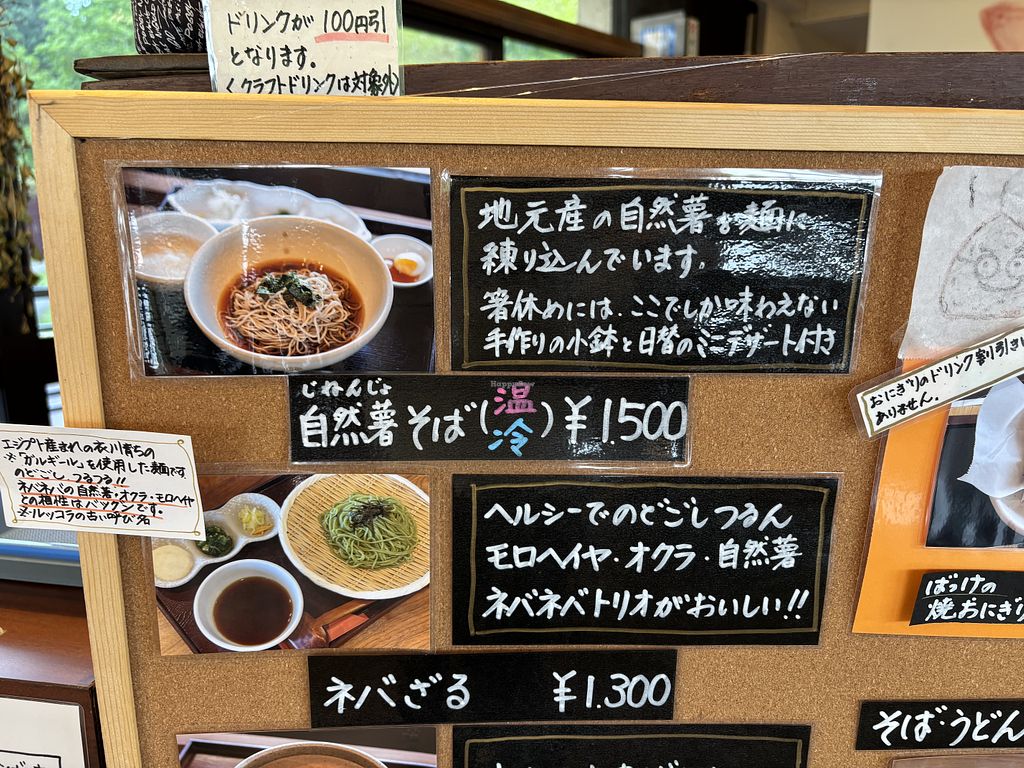 ドリンクが100円引
となります。
〈クラフトドリンクは対象外〉
地元産の自然薯を麺に
練り込んでいます。
箸休めには、ここでしか味わえない
手作りの小鉢と日替のミニデザート付き
じねんじょ
自然薯そば(温冷)¥1.500
おにぎりのドリンク割引さい
ありません。
エジプト産まれの衣川育ちの
※「ガルギール」を使用した麺です
のどごしつるつる!!
ネバネバの自然薯・オクラ・モロヘイヤ
との相性はバツグンです。
※ルッコラの古い呼び名
ヘルシーでのどごしつるん
モロヘイヤ・オクラ・自然薯
ネバネバトリオがおいしい!!
ネバざる ¥1.300
ばっけの
焼おにぎり
そば・うどん